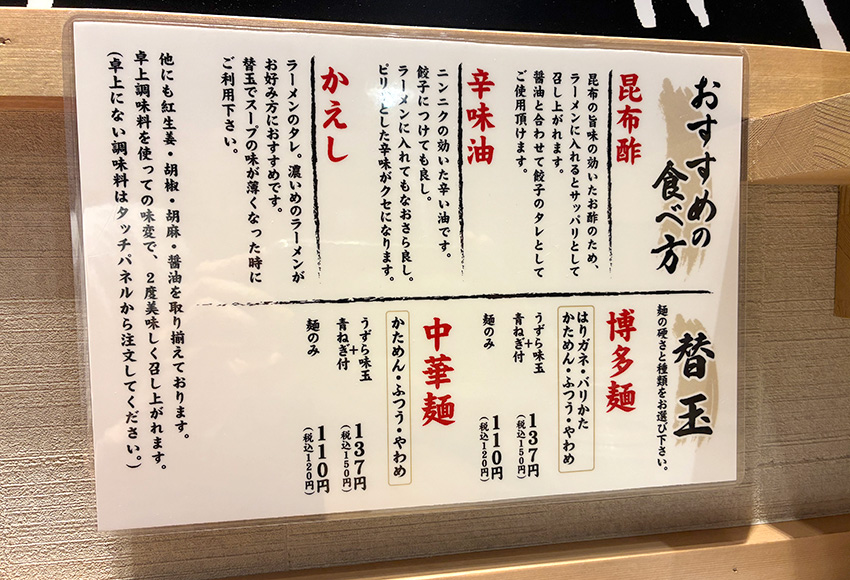 おすすめの
食べ方
昆布酢
昆布の旨味の効いたお酢のため、
ラーメンに入れるとサッパリとして
召し上がれます。
醤油と合わせて餃子のタレとして
ご使用頂けます。
辛味油
ニンニクの効いた辛い油です。
餃子につけても良し。
ラーメンに入れてもなおさら良し。
ピリッとした辛味がクセになります。
かえし
ラーメンのタレ。濃いめのラーメンが
お好み方におすすめです。
替玉でスープの味が薄くなった時に
ご利用下さい。
替玉
麺の硬さと種類をお選び下さい。
博多麺
はりガネ・バリかた
かためん・ふつう・やわめ
うずら味玉
+
青ねぎ付
137円
(税込150円)
麺のみ
110円
(税込120円)
中華麺
かためん・ふつう・やわめ
うずら味玉
+
青ねぎ付
137円
(税込150円)
麺のみ
110円
(税込120円)
他にも紅生姜・胡椒・胡麻・醤油を取り揃えております。
卓上調味料を使っての味変で、2度美味しく召し上がれます。
(卓上にない調味料はタッチパネルから注文してください。)